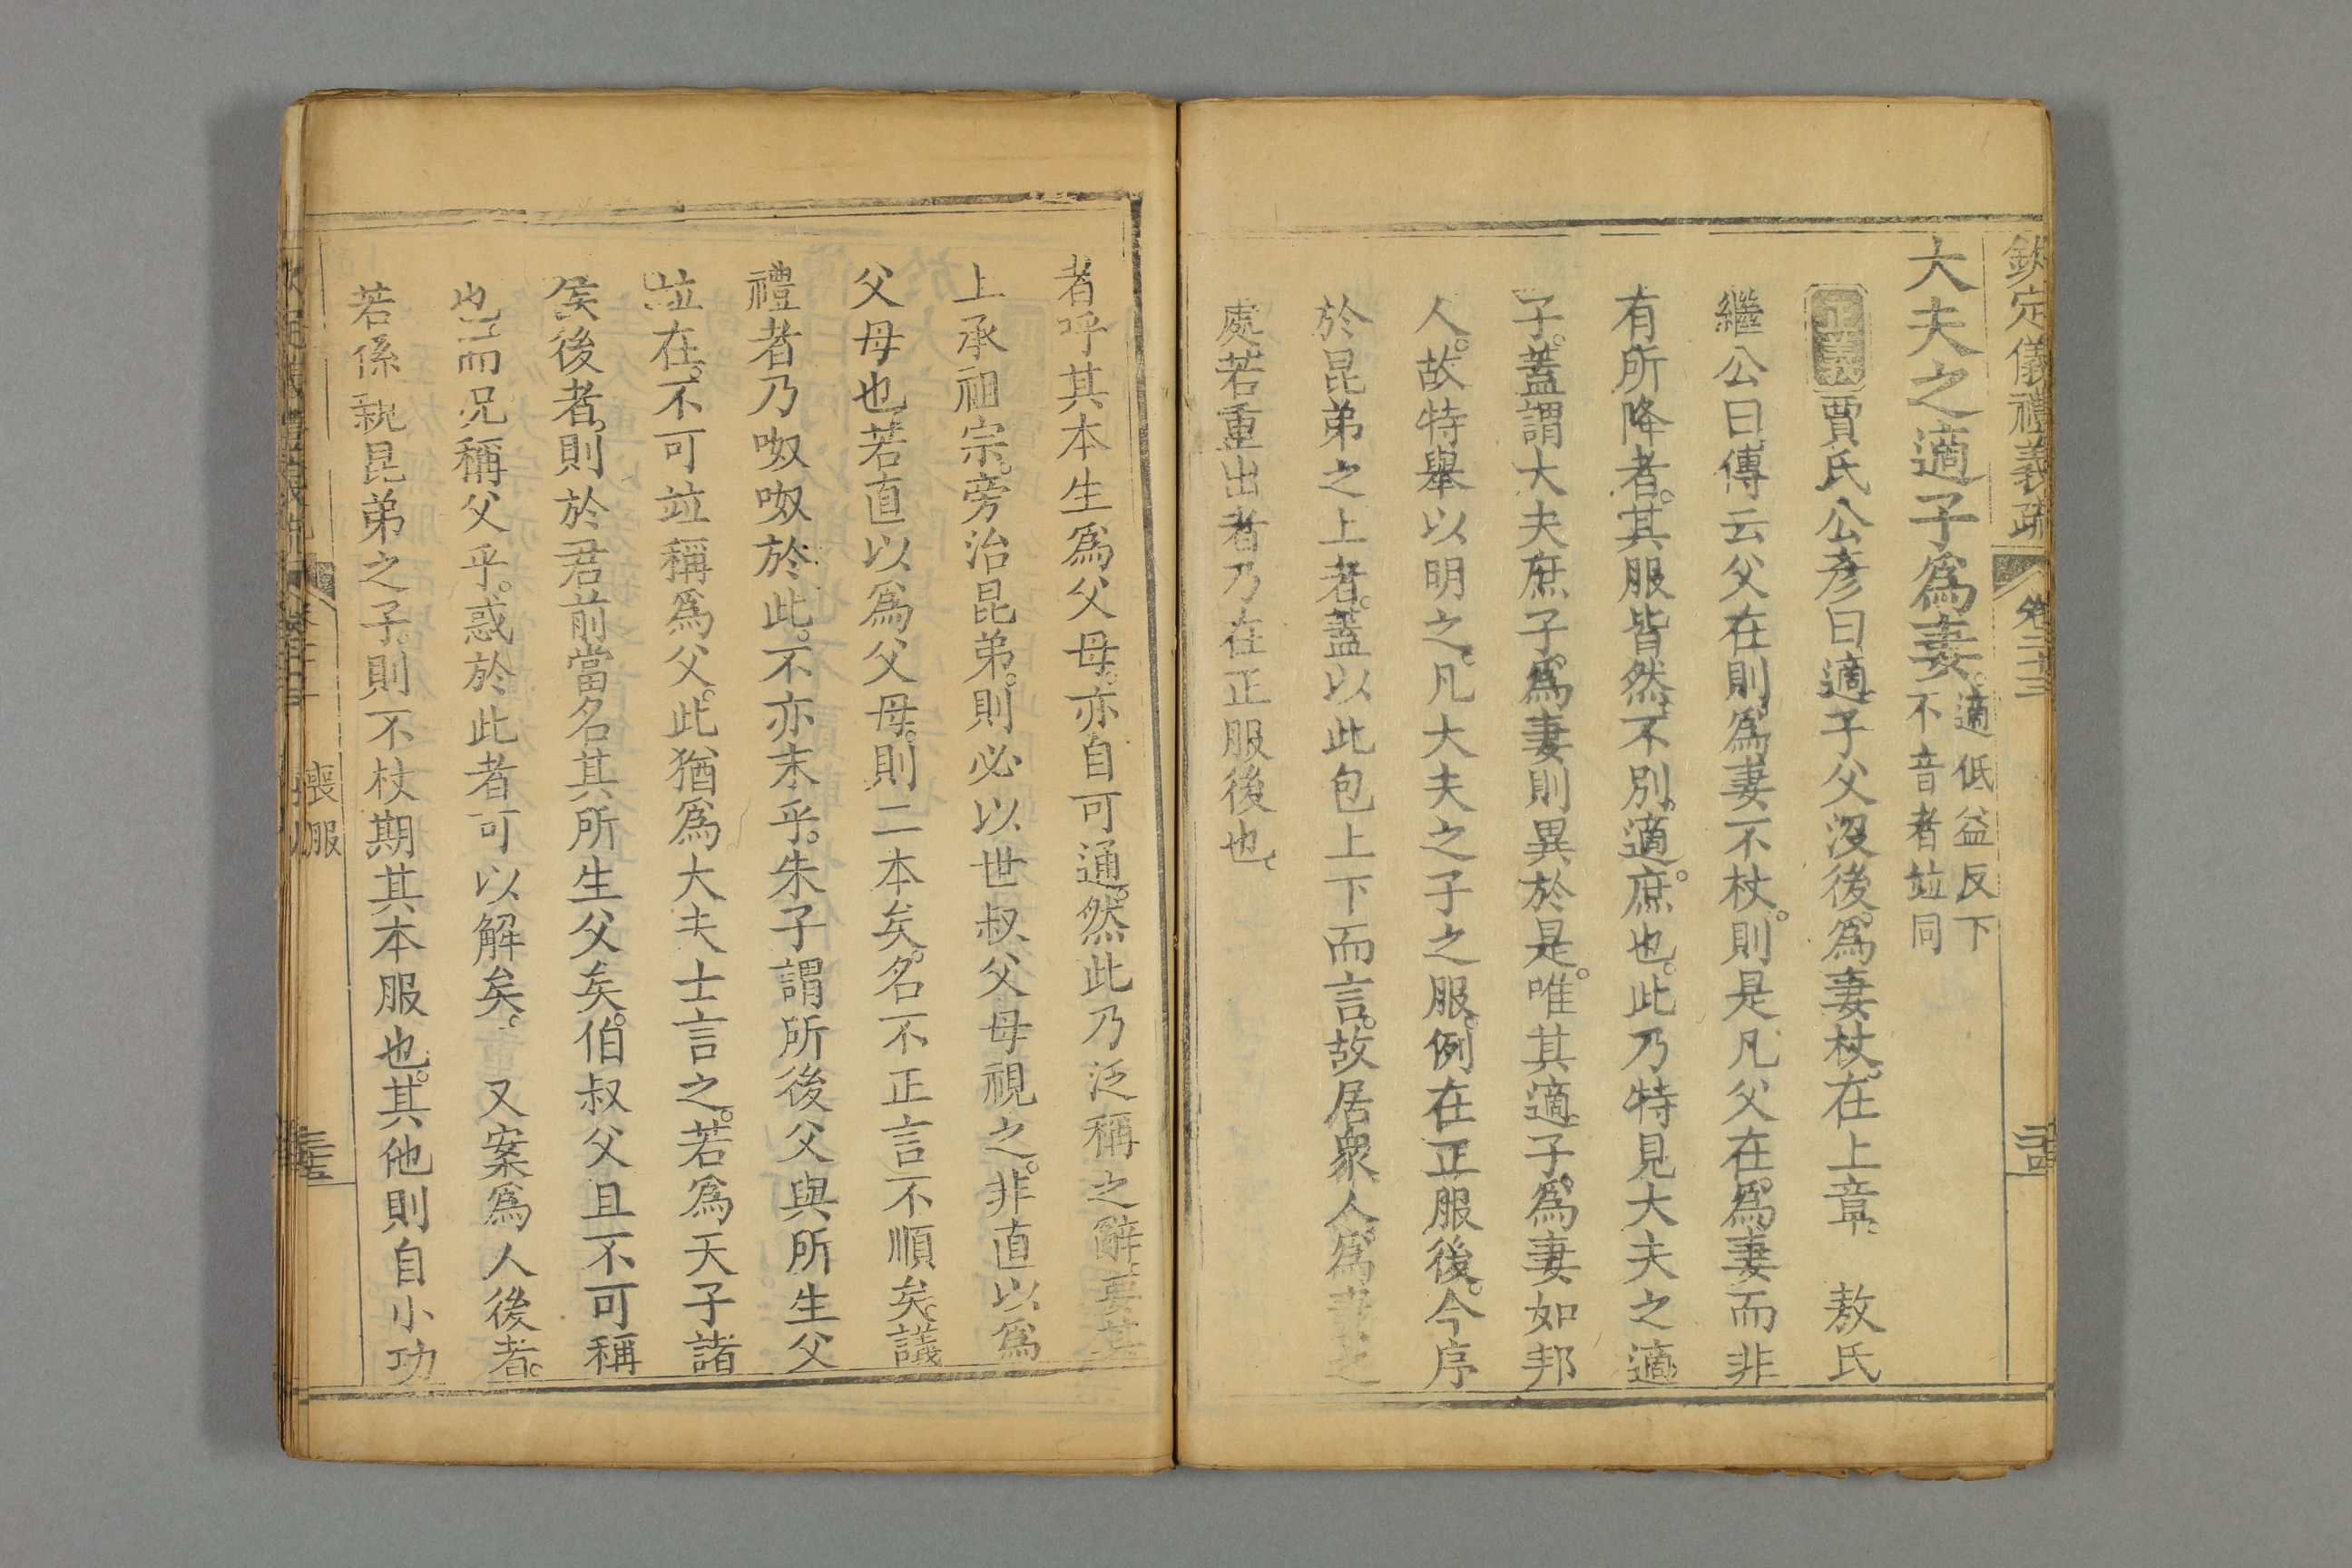 欽定儀禮義疏 卷二十三 三十四
大夫之適子爲妻。適低益反下不音者竝同
正義 賈氏公彥曰適子父沒後爲妻杖在上章 敖氏
繼公曰傳云父在則爲妻不杖則是凡父在爲妻而非
有所降者其服皆然不別適庶也此乃特見大夫之適
子蓋謂大夫庶子爲妻則異於是唯其適子爲妻如邦
人故特舉以明之凡大夫之子之服例在正服後今序
於昆弟之上者蓋以此包上下而言故居衆人爲妻之
處若重出者乃在正服後也
者呼其本生爲父母亦自可通然此乃泛稱之辭要其
上承祖宗旁治昆弟則必以世叔父母視之非直以爲
父母也若直以爲父母則二本矣名不正言不順矣議
禮者乃呶呶於此不亦末乎朱子謂所後父與所生父
竝在不可竝稱爲父此猶爲大夫士言之若爲天子諸
侯後者則於君前當名其所生父矣伯叔父且不可稱
也而況稱父乎惑於此者可以解矣 又案爲人後者
若係親昆弟之子則不杖期其本服也其他則自小功
喪服